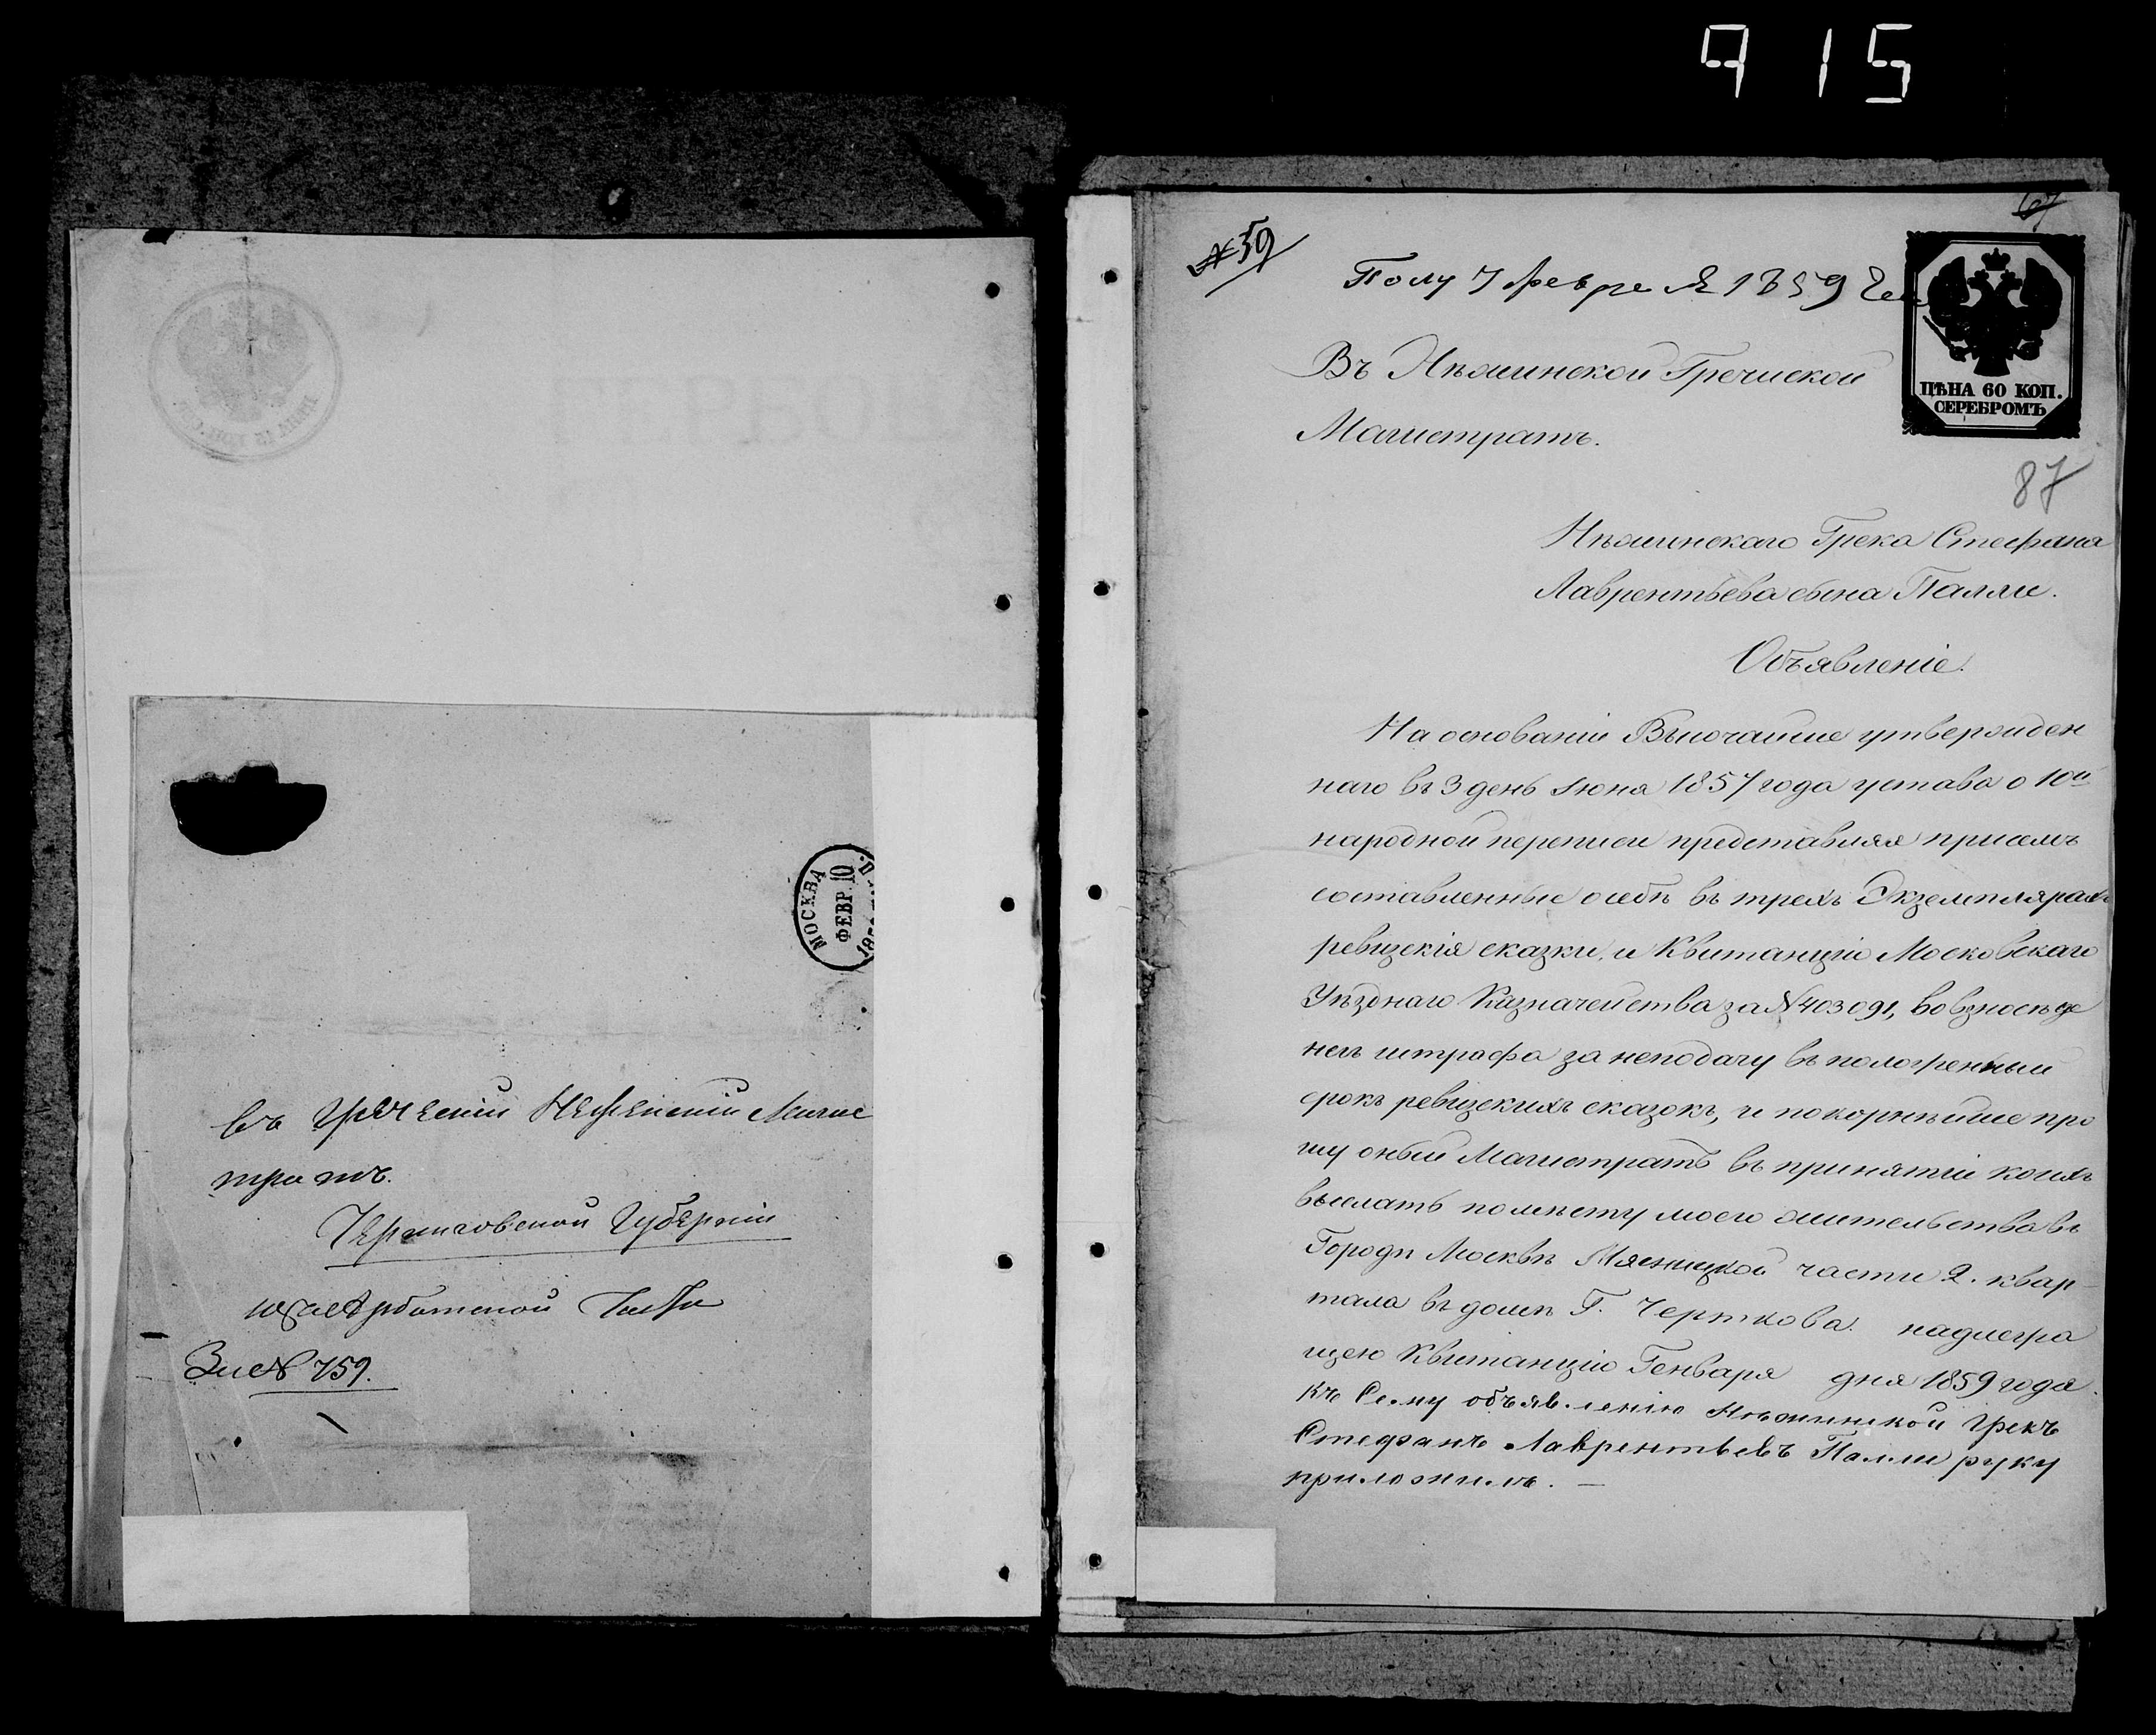 915
въ Греческій Нежинскій Магис
тратъ.
Черниговской Губерніи
Арбатской части
За № 759.
МОСКВА
ФЕВР. 10
67
№ 59
Полу 7 февраля 1859 года
ЦѢНА 60 КОП.
СЕРЕБРОМЪ
Въ Нѣжинской Греческой
Магистратъ.
87
Нѣжинскаго Грека Стефана
Лаврентьева сына Палли.
Объявленіе.
На основаніи Высочайше утвержден
наго въ 3 день Іюня 1857 года устава о 10й
народной переписи представляя присемъ
составленные о себѣ въ трехъ Экземплярахъ
ревизскія сказки, и Квитанцію Московскаго
Уѣзднаго Казначейства за № 403091, во взносѣ де
негъ штрафа за неподачу въ положенный
срокъ ревизскихъ сказокъ, и покорнѣйше про
шу оный Магистратъ въ принятіи коихъ
выслать помѣсту моего жительства въ
Городѣ Москвѣ Мясницкой части 2. квар
тала въ домѣ Г. Черткова. надлежа
щею Квитанцію Генваря дня 1859 года.
Къ Сему объявленію Нѣжинской Грекъ
Стефанъ Лаврентьевъ Палли руку
приложилъ. —